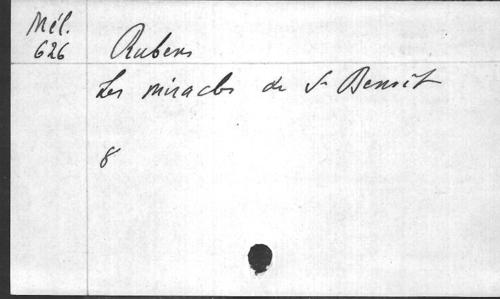 Mél.
626
Rubens
Les miracles de St Benoît
8